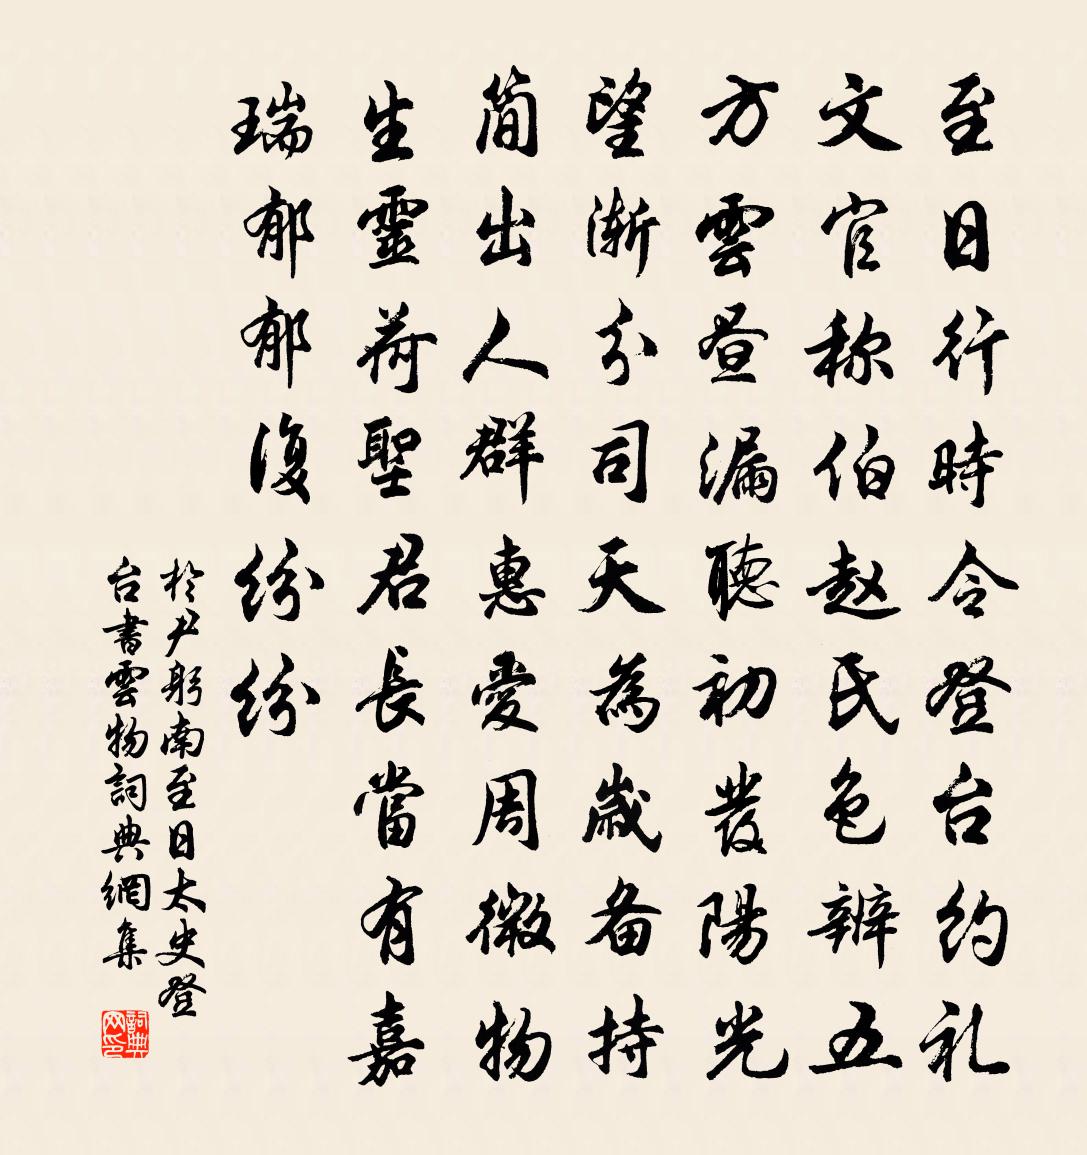 至日行時令登台約礼
文官称伯赵氏色辨五
方雲昼漏聽初發陽光
望漸分司天為歲备持
简出人群惠愛周微物
生靈荷聖君長當有嘉
瑞郁郁復纷纷
於尹躬南至日太史登
台書雲物詞典網集
詞典网印